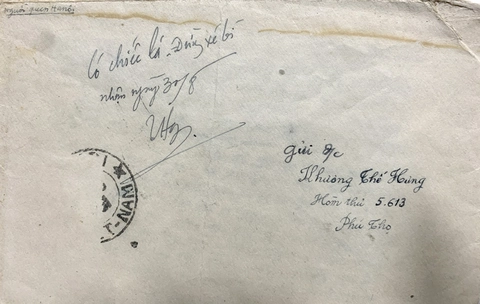 Người quen Hà Nội
Có chiếc lá. Đừng xé bỏ
nhận ngày 30/8
gửi đ/c
Khương Thế Hưng
Hòm thư 5.613
Phú Thọ
T-NAM